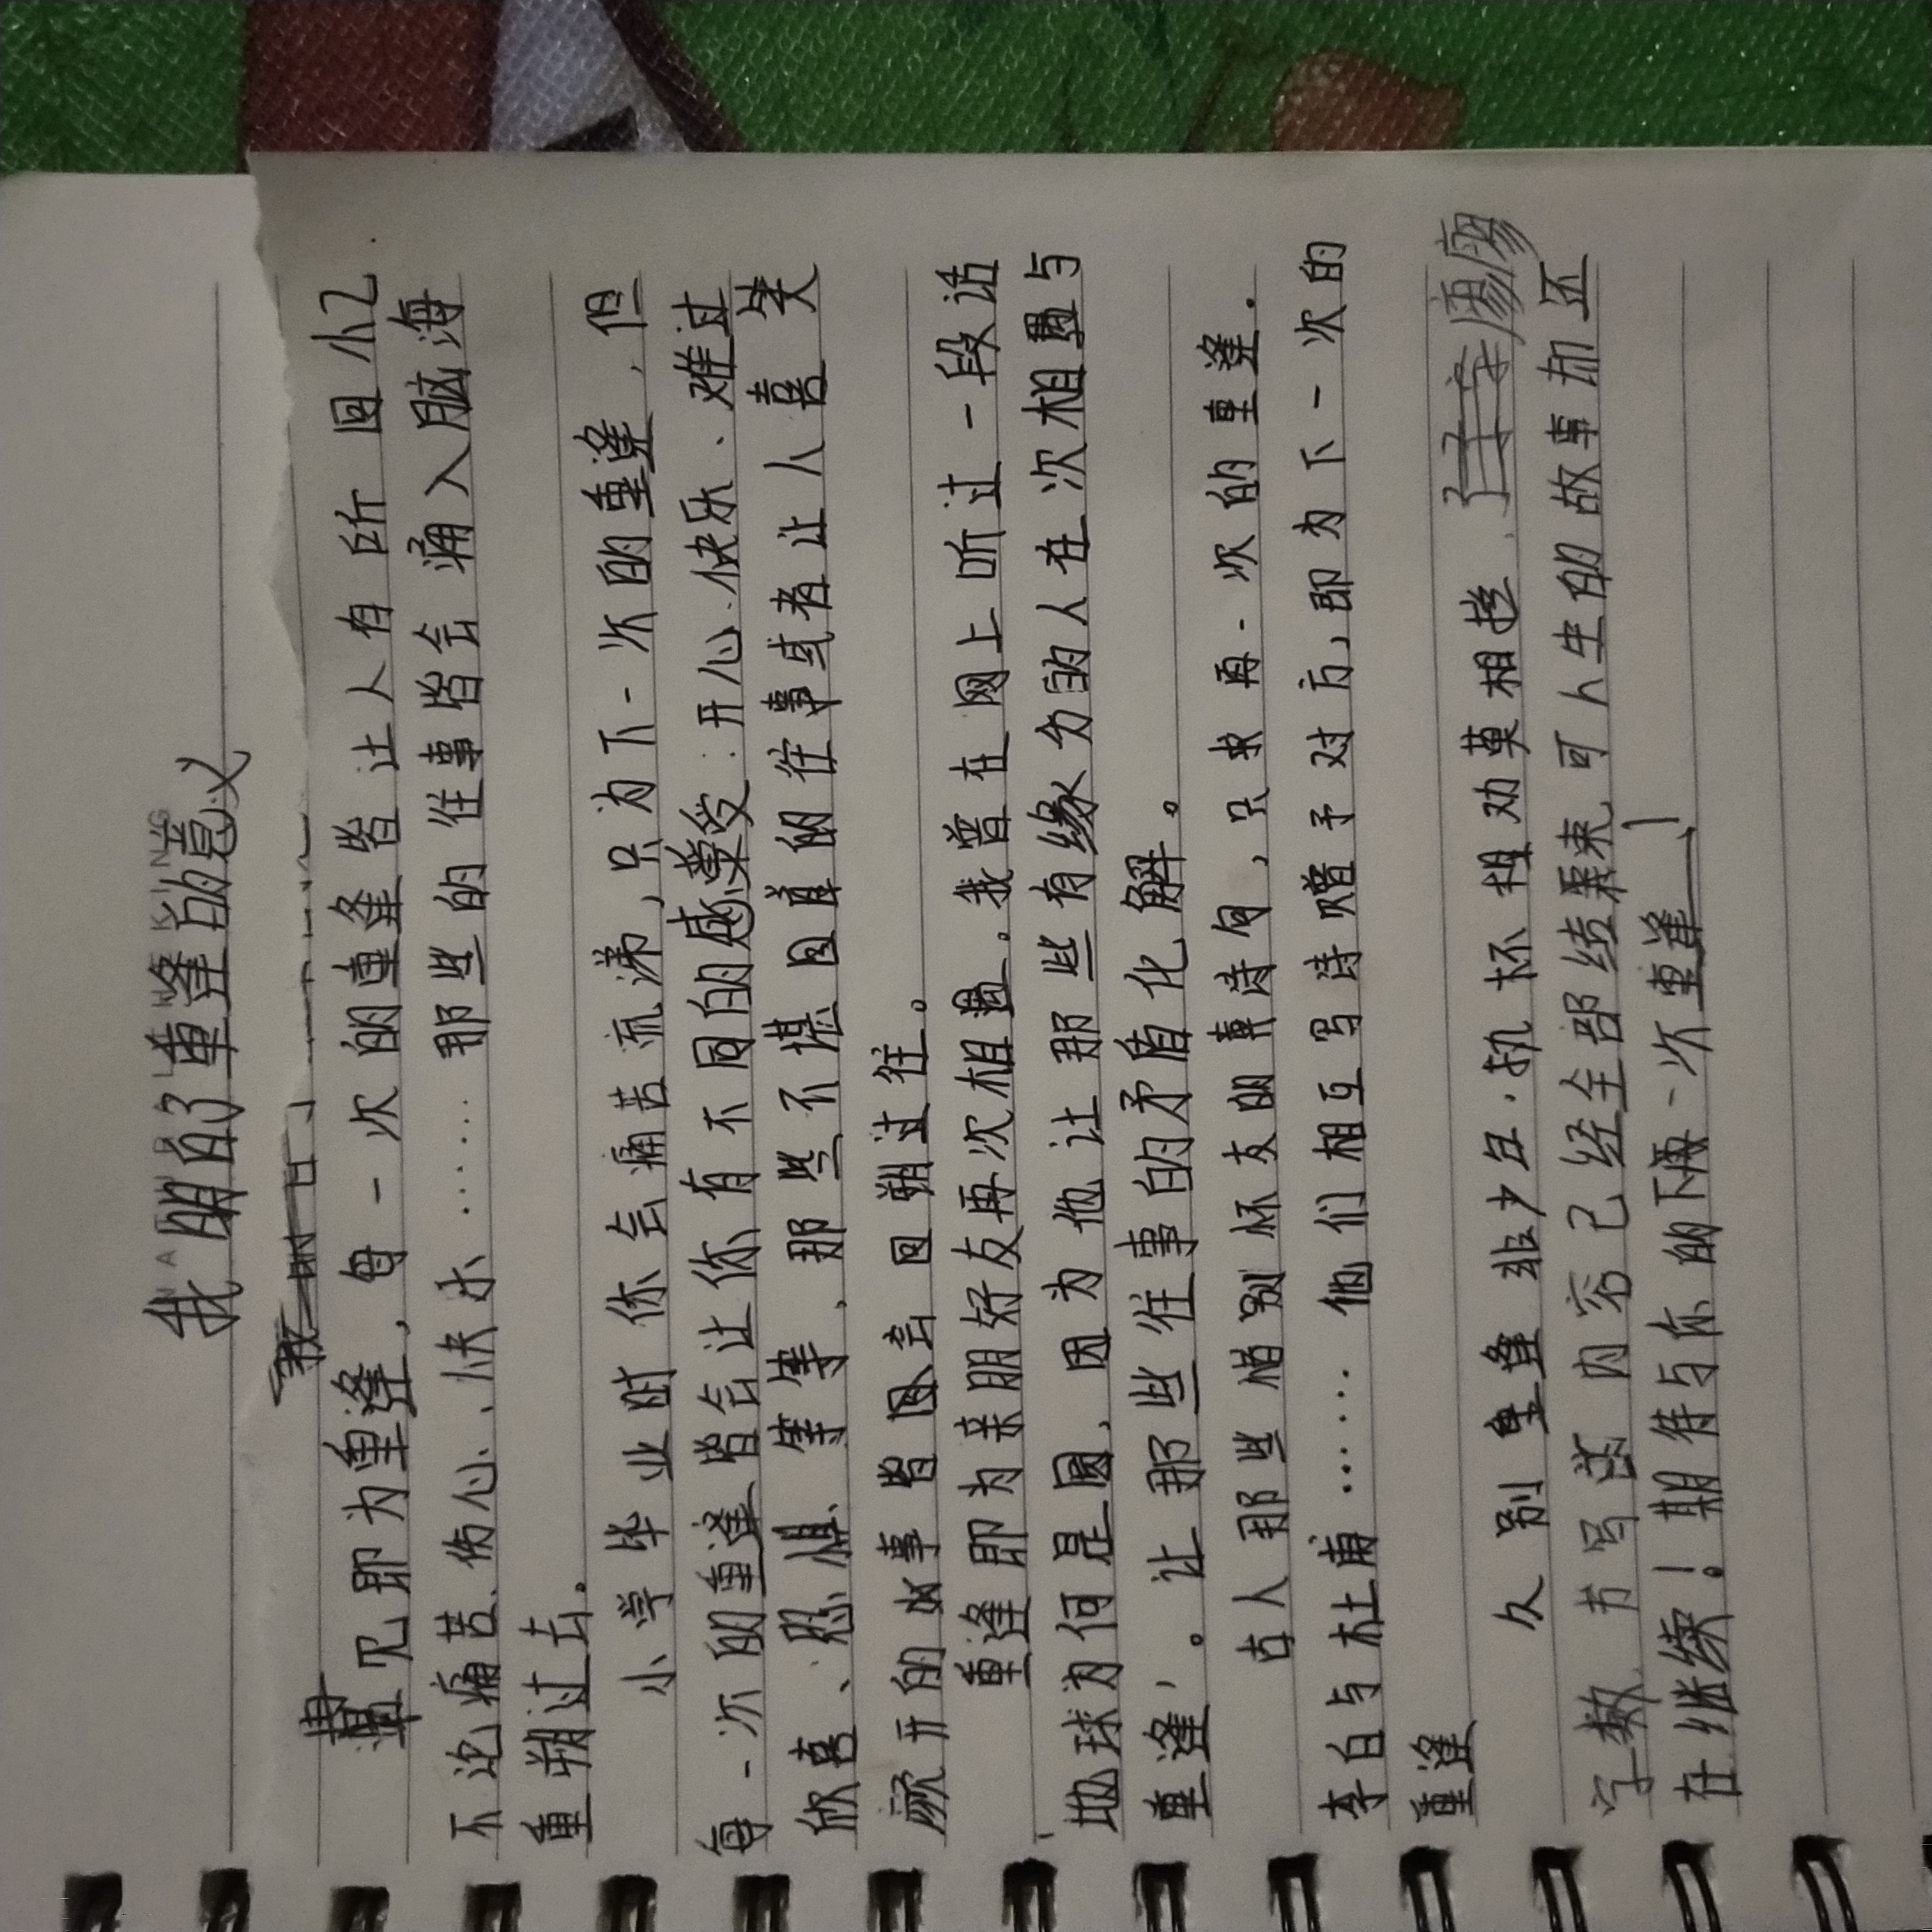 我明白了重逢的意义
再见即为重逢，每一次的重逢皆让人有所回忆
不论痛苦、伤心、快乐……那些的往事皆会涌入脑海
重塑过去。
小学毕业时你会痛苦流涕，只为下一次的重逢，但
每一次的重逢皆会让你有不同的感受：开心、快乐、难过
欣喜、思想、等等，那些不堪回首的往事或者让人喜笑
颜开的故事皆会回朔过往。
重逢即为亲朋好友再次相遇。我曾在网上听过一段话
地球为何是圆，因为他让那些有缘分的人在次相遇与
重逢，。让那些往事的矛盾化解。
古人那些惜别怀友的事诗句，只求再一次的重逢.
李白与杜甫……他们相互写诗赠予对方，即为下一次的
重逢
久别重逢非少年.执杯相劝莫相拦.
字数 节写 内容已经全部结束 可人生的故事却还
在继续！期待与你的下一次重逢——！